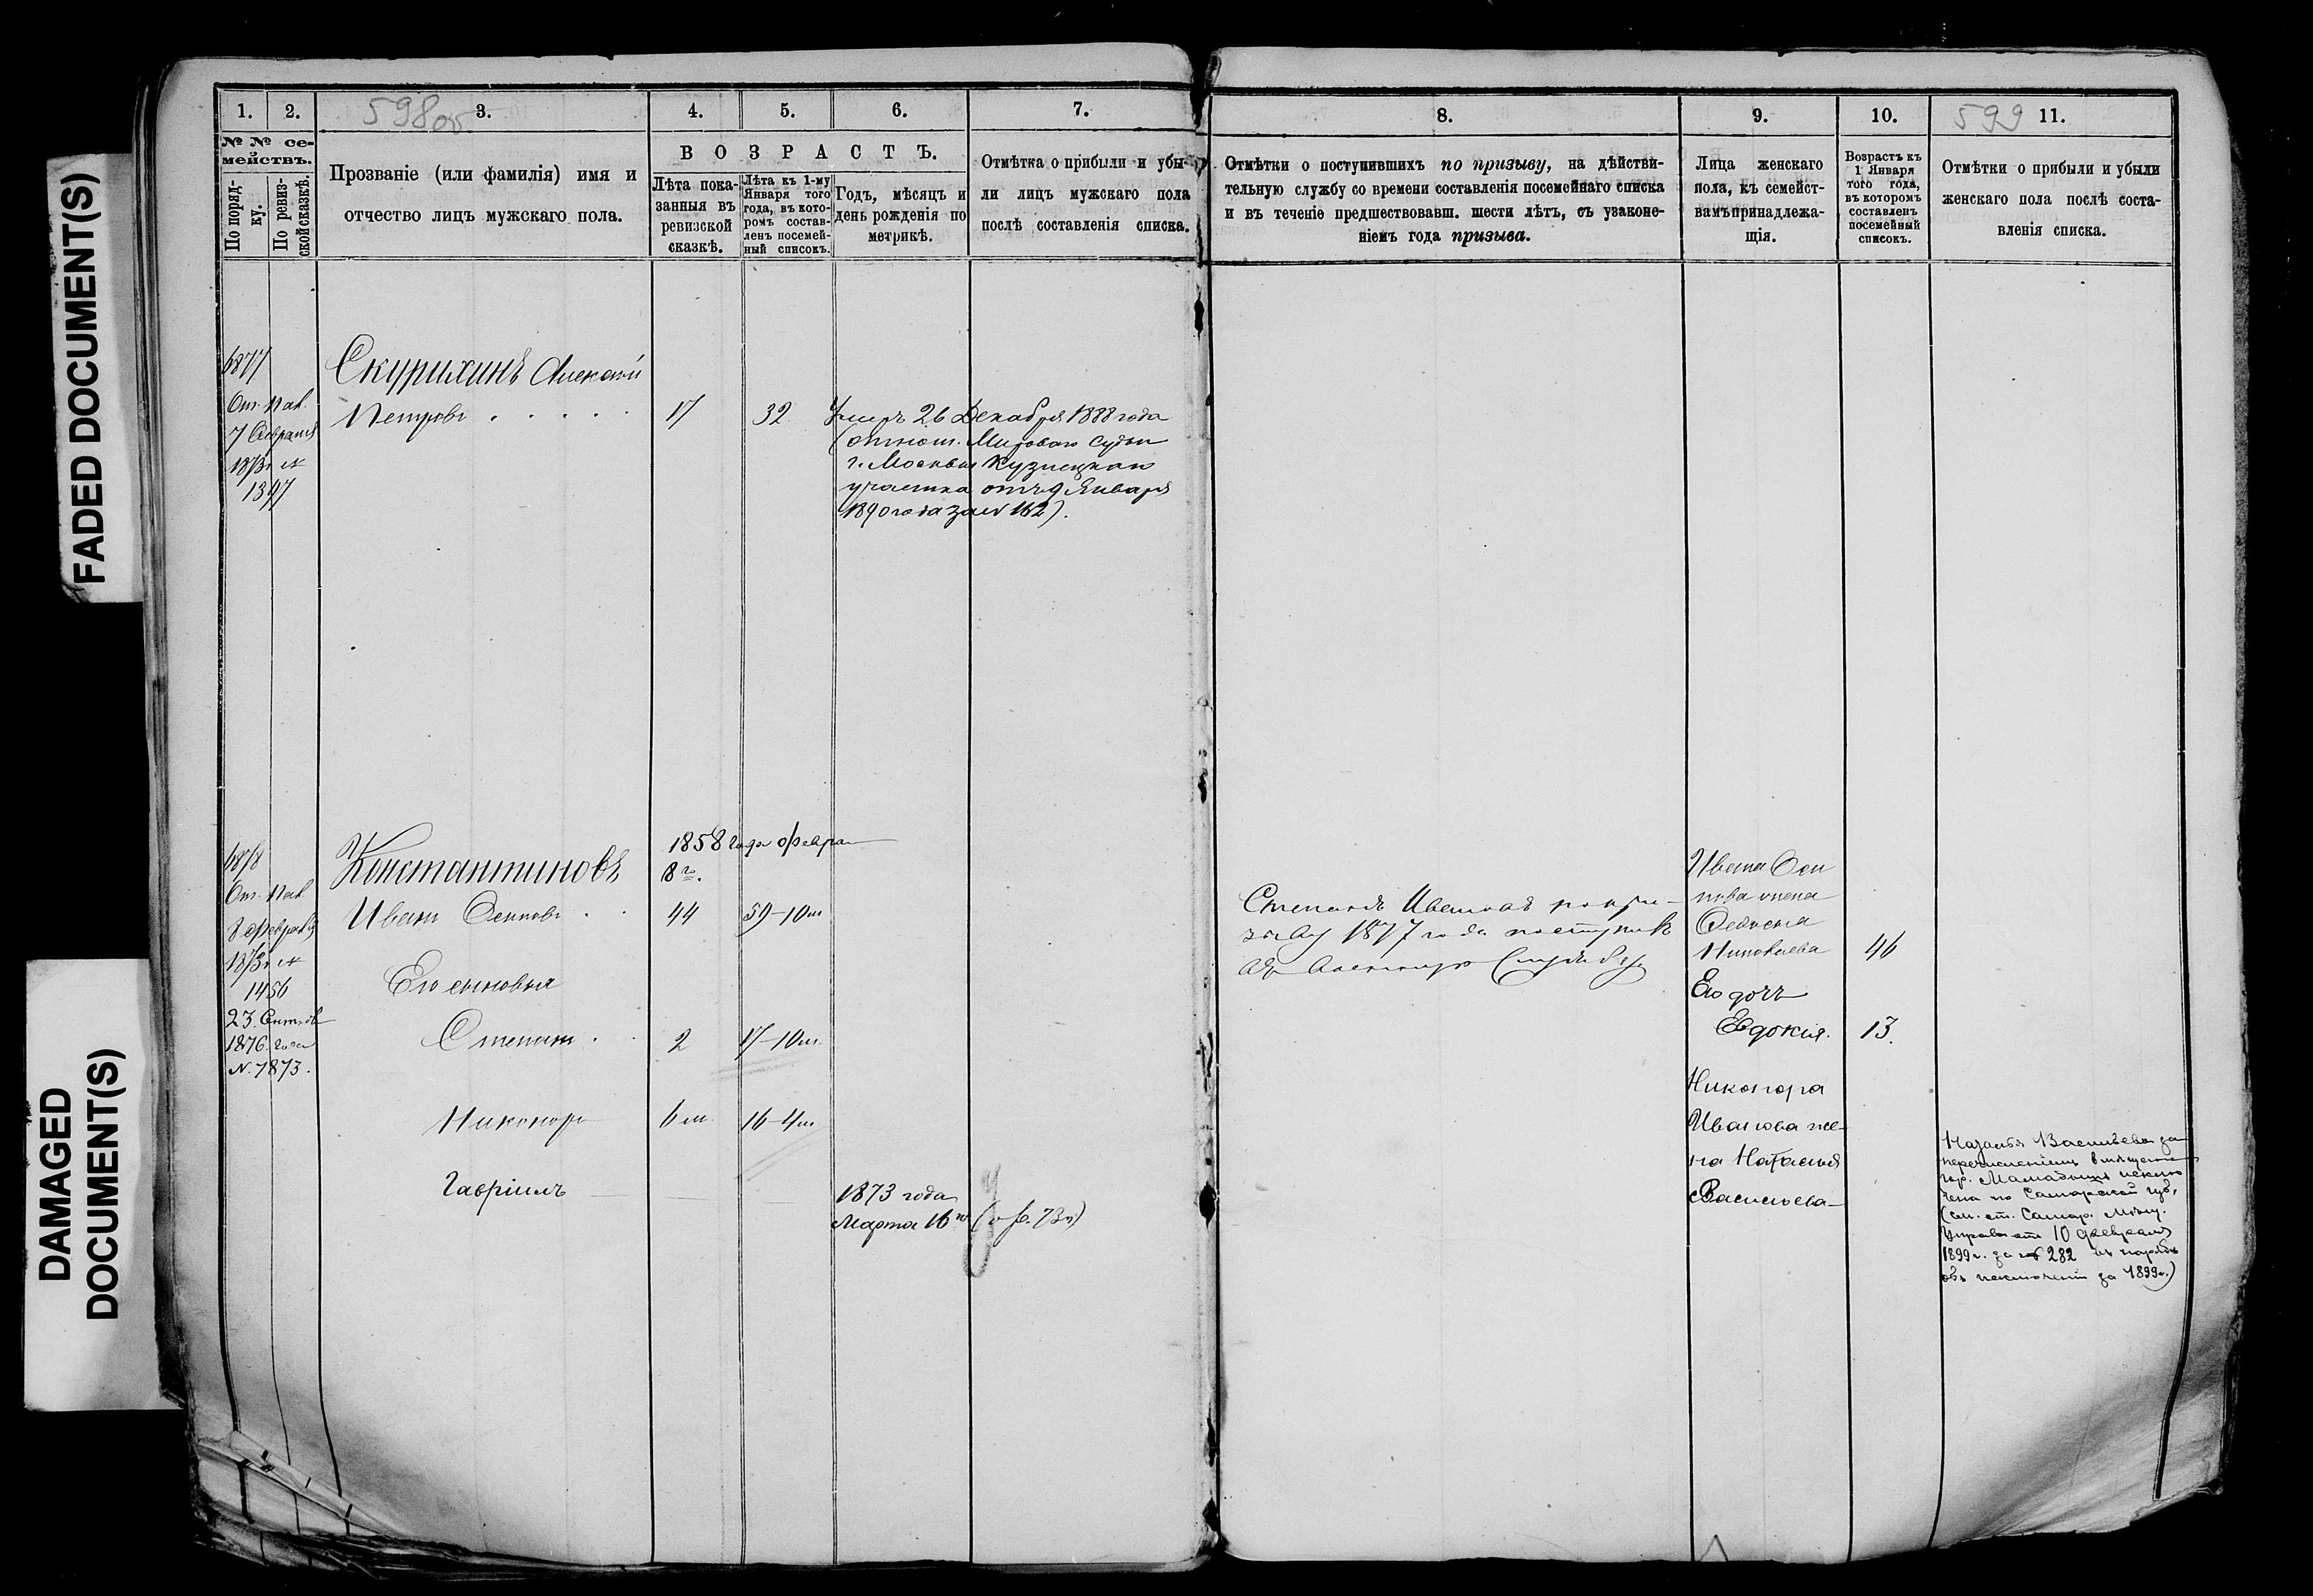 FADED DOCUMENT(S)
DAMAGED
DOCUMENT(S)
598об.
1.
2.
3.
4.
5.
6.
7.
№ № се-
мействъ.
По поряд-
ку.
По ревиз-
ской сказкѣ.
Прозваніе (или фамилія) имя и
отчество лицъ мужскаго пола.
ВОЗРАСТЪ.
Лѣта пока-
занныя въ
ревизской
сказкѣ.
Лѣта къ 1-му
Января того
года, въ кото-
ромъ состав-
ленъ посемей-
ный списокъ.
Годъ, мѣсяцъ и
день рожденія по
метрикѣ.
Отмѣтка о прибыли и убы-
ли лицъ мужскаго пола
послѣ составленія списка.
6877
От. Пал.
7 Февраля
1873 г. №
1397
Скурихинъ Алексѣй
Петровъ
17
32
Умеръ 26 Декабря 1888 года
(отнош. Мироваго Судьи
г. Москвы Кузнецкаго
участка отъ 9 Января
1890 года за № 162).
6878
От. Пал.
8 Февраля
1873 г. №
1456
23. Октяб
1876 года
№ 7873.
Константиновъ
1858 года Феврал
8 го.
Иванъ Осиповъ
44
59-10м
Его сыновья
Степанъ
2
17-10м.
Никоноръ
6 м.
16-4м
Гавріилъ
1873 года
Марта 16го
599
8.
9.
10.
11.
Отмѣтки о поступившихъ по призыву, на дѣйстви-
тельную службу со времени составленія посемейнаго списка
и въ теченіе предшествовавш. шести лѣтъ, съ узаконе-
ніемъ года призыва.
Лица женскаго
пола, къ семейст-
вамъ принадлежа-
щія.
Возрастъ къ
1 Января
того года,
въ которомъ
составленъ
посемейный
списокъ.
Отмѣтки о прибыли и убыли
женскаго пола послѣ соста-
вленія списка.
Степанъ Ивановъ по при-
зыву 1877 года поступилъ
въ военную службу
Ивана Оси
пова жена
Федосья
Николаева
46
Его дочь
Евдокія.
13.
Никонора
Иванова же-
на Наталья
Васильева
Наталья Васильева за
перечисленіемъ въ мѣщане
гор. Мамадышъ исклю
чена по Самарской губ,
(см. от. Самар. Мѣщ.
Управы отъ 10 февраля
1899 г. за № 282 въ наряд
объ исключеніи за 1899 г.)